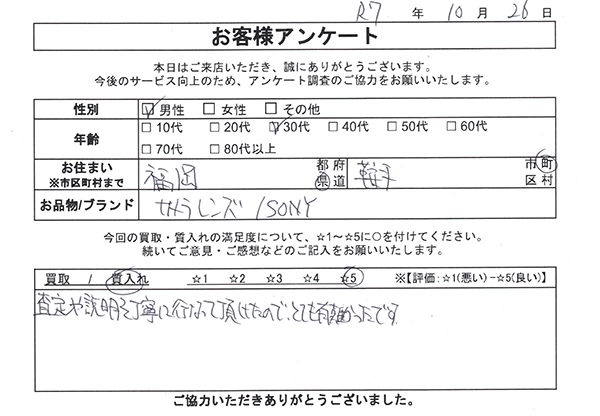 R7 年 10 月 26 日
お客様アンケート
本日はご来店いただき、誠にありがとうございます。
今後のサービス向上のため、アンケート調査のご協力をお願いいたします。
性別 ☑男性 □女性 □その他
年齢 □10代 □20代 ☑30代 □40代 □50代 □60代
□70代 □80代以上
お住まい ※市区町村まで 福岡 都府県道 鞍手 市町区村
お品物/ブランド カメラレンズ / SONY
今回の買取・質入れの満足度について、☆1～☆5に○を付けてください。
続いてご意見・ご感想などのご記入をお願いいたします。
買取 / 質入れ ☆1 ☆2 ☆3 ☆4 ☆5 ※【評価:☆1(悪い)-☆5(良い)】
査定や説明を丁寧に行なって頂けたので、とても有難かったです
ご協力いただきありがとうございました。